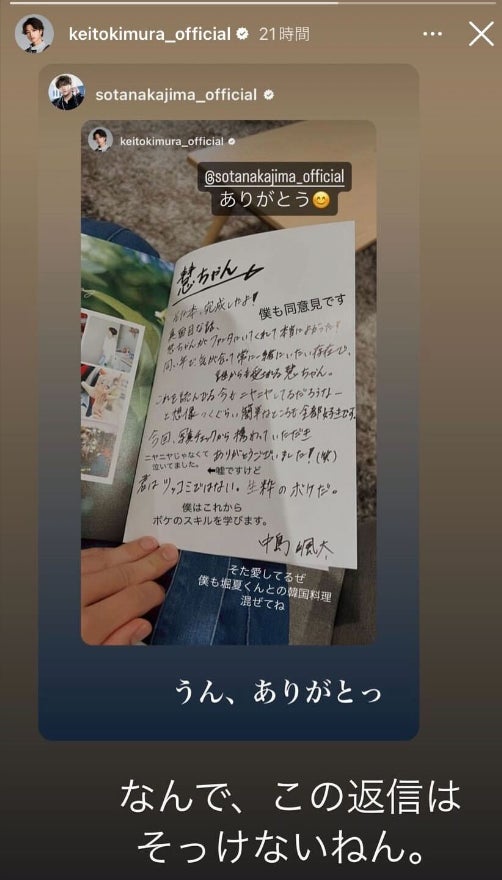 keitokimura_official 21時間
sotanakajima_official
keitokimura_official
@sotanakajima_official
ありがとう😊
慧ちゃん
完成したよ!
僕も同意見です
真面目な話、
慧ちゃんがファンタにいてくれて本当によかった!
同い年で気が合って常に一緒にいたい存在で、
慧ちゃん。
これを読んでる今もニヤニヤしてるだろうなー
と想像つくぐらい簡単なところも全部好きです。
今回、写真チェックから携わっていただき
ニヤニヤじゃなくて
泣いてました。
ありがとうございました!(笑)
⬅嘘ですけど
君はツッコミではない。生粋のボケだ。
僕はこれから
ボケのスキルを学びます。
中島颯太
そた愛してるぜ
僕も堀夏くんとの韓国料理
混ぜてね
うん、ありがとっ
なんで、この返信は
そっけないねん。